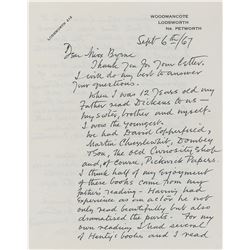 WOODMANCOTE
LODSWORTH
Nr. PETWORTH
Sept 6th/67
Dear Miss Byrne
Thank you for your letter.
I will do my best to answer
your questions.
When I was 12 years old my
Father read Dickens to us —
my sister, brother and myself.
I was the youngest.
We had David Copperfield,
Martin Chuzzlewhit, Dombey
& Son, the old Curiosity Shop
and, of course, Pickwick Papers.
I think half of my enjoyment
of these books came from my
father's reading - Having had
experience as an actor he not
only read beautifully but also
dramatised the parts. For my
own reading I had several
of Henty's books and I read